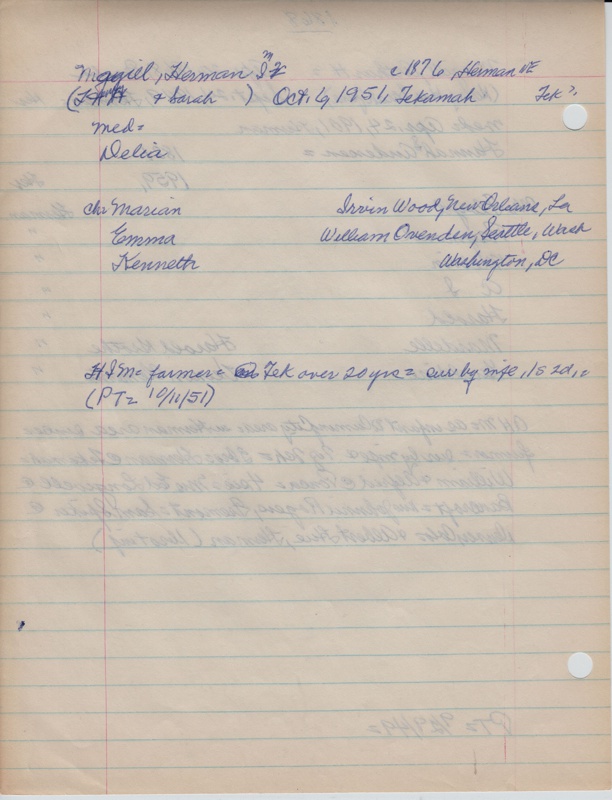 Magill, Herman I c1876, Herman NE
( & Sarah ) Oct. 6, 1951, Tekamah Tek ?
med=
Delia
ch: Marian Irvin Wood, New Orleans, La
Emma William Ovenden, Seattle, Wash
Kenneth Washington, DC
H I M= farmer= Tek over 20 yrs= sur by wife, 1s 2d,
(PT= 10/11/51)